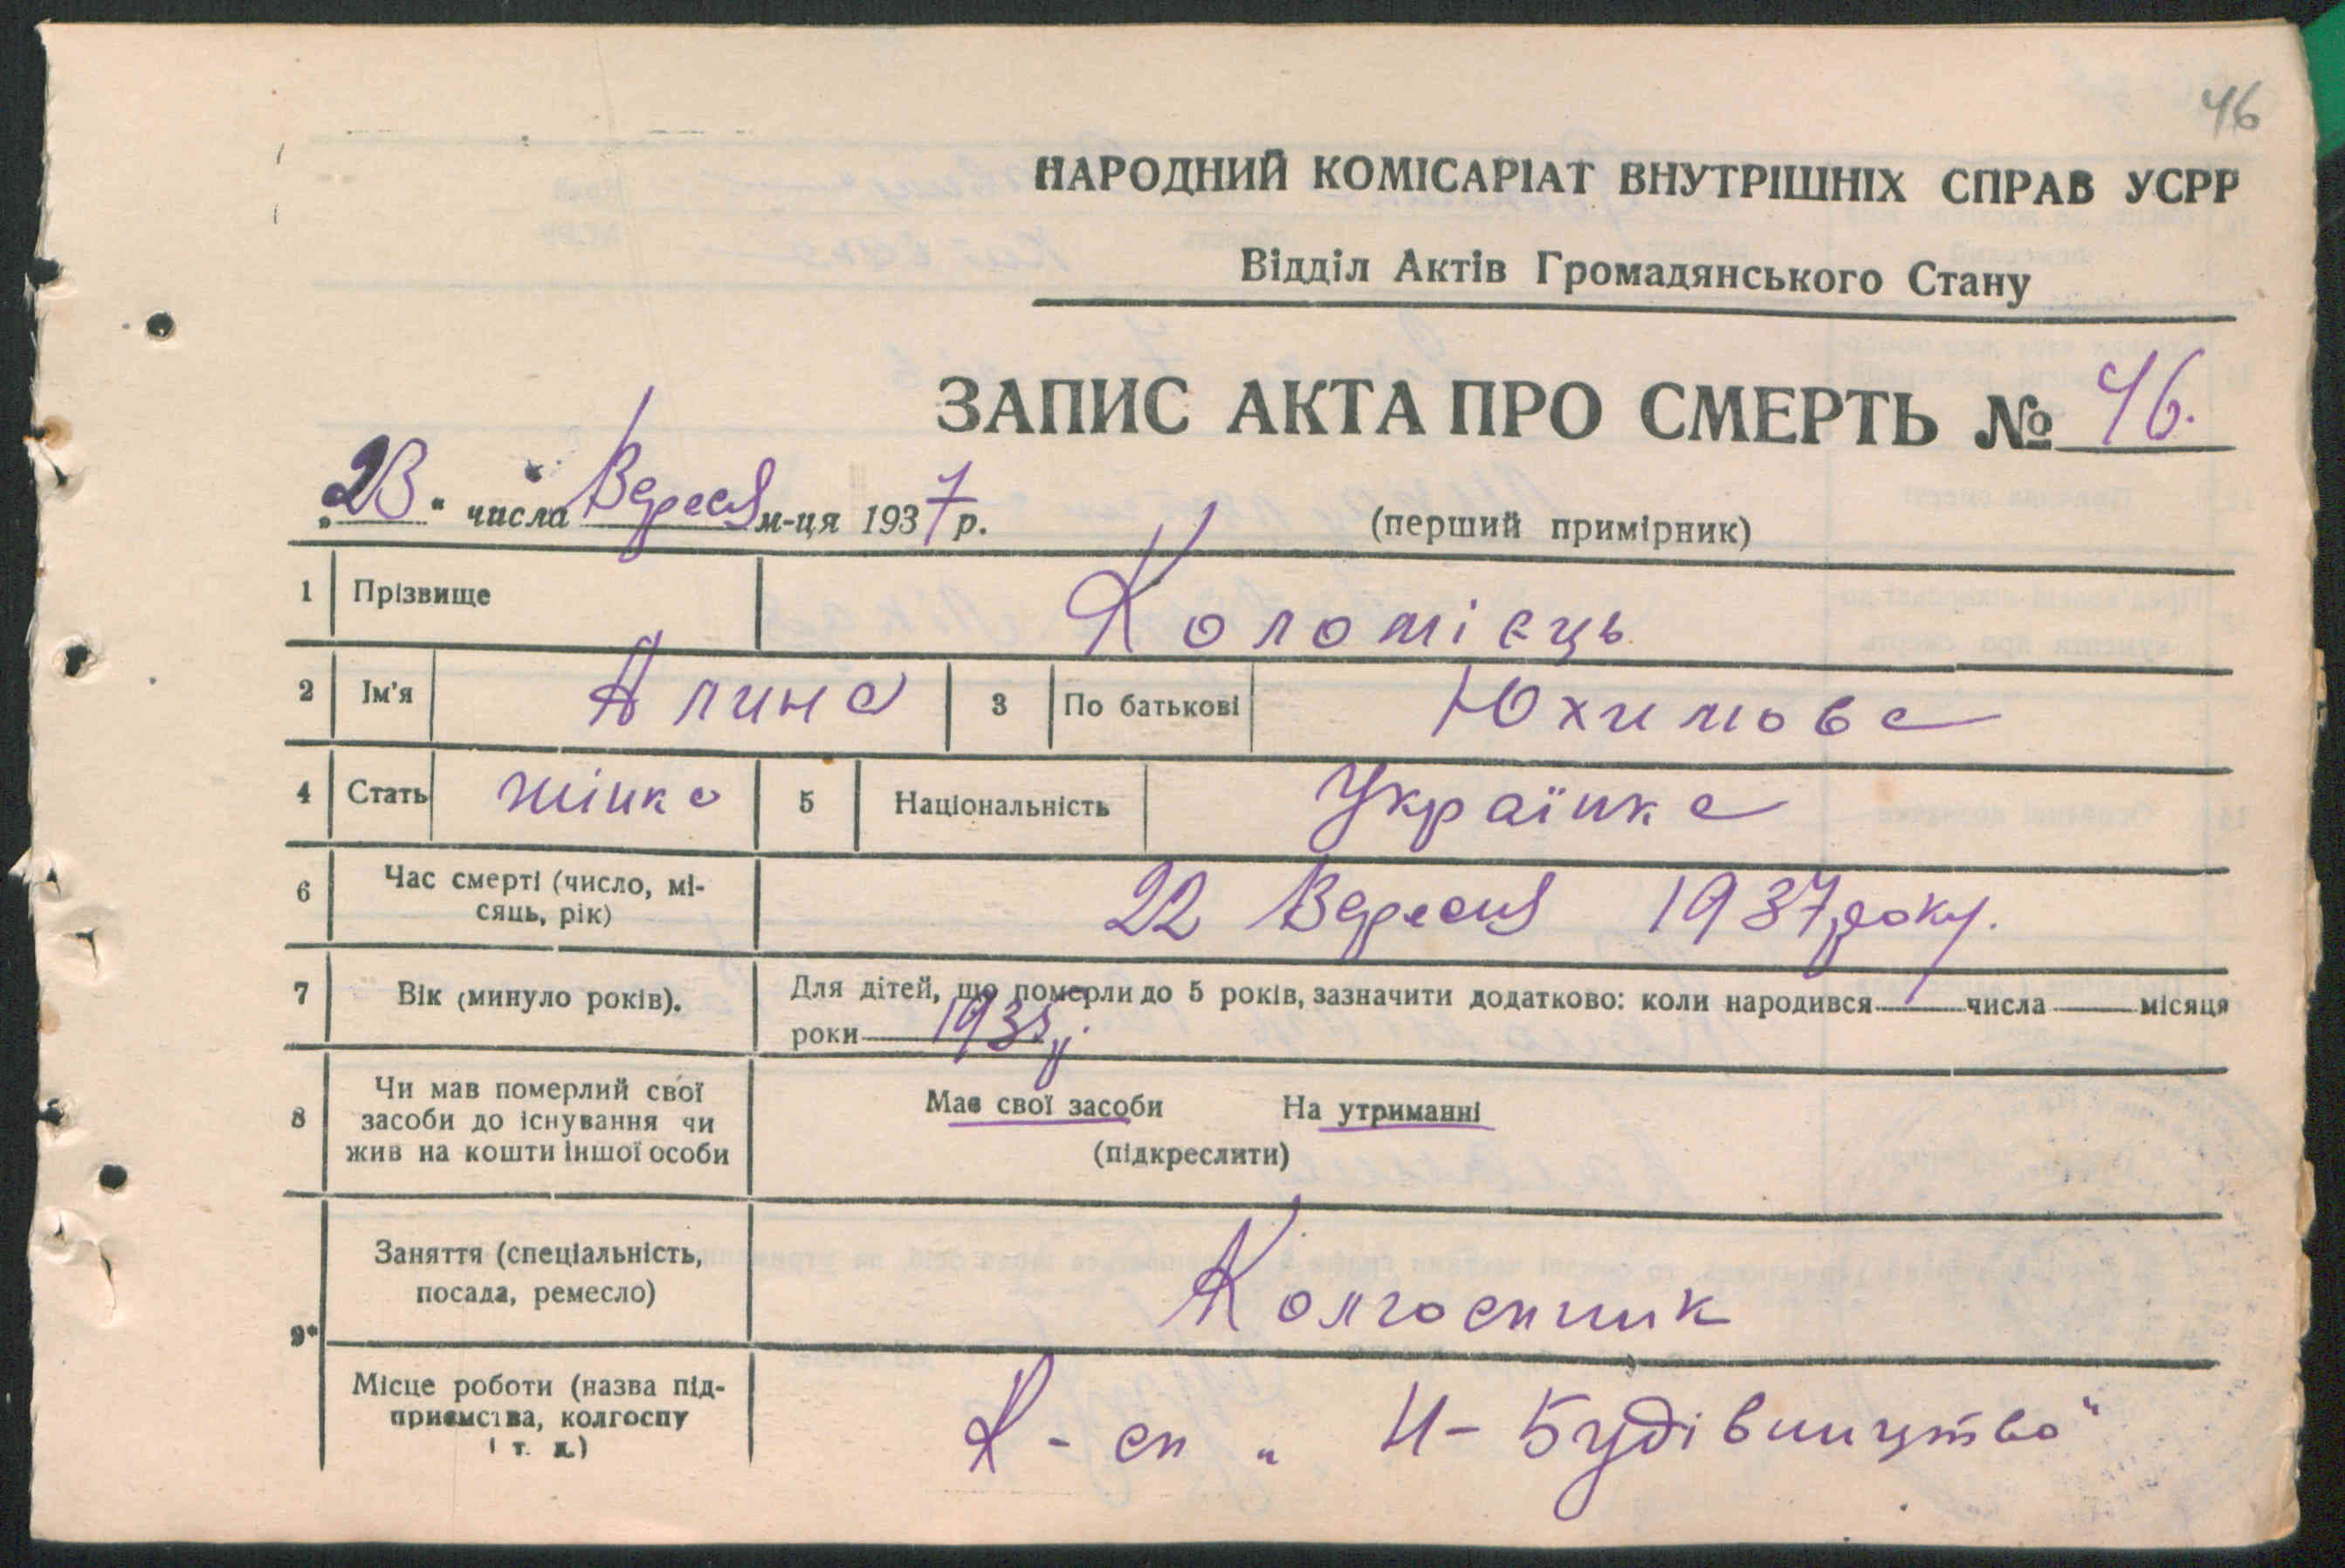 46
НАРОДНИЙ КОМІСАРІАТ ВНУТРІШНІХ СПРАВ УСРР
Відділ Актів Громадянського Стану
ЗАПИС АКТА ПРО СМЕРТЬ № 46.
„23“ числа Вересня м-ця 1937 р.
(перший примірник)
1 Прізвище Коломієць
2 Ім'я Алина 3 По батькові Юхимова
4 Стать жінка 5 Національність Українка
6 Час смерті (число, мі-
сяць, рік) 22 Вересня 1937 року.
7 Вік (минуло років). Для дітей, що померли до 5 років, зазначити додатково: коли народився числа місяця
роки
8 Чи мав померлий свої
засоби до існування чи
жив на кошти іншої особи
Має свої засоби На утриманні
(підкреслити)
9* Заняття (спеціальність,
посада, ремесло) Колгоспник
Місце роботи (назва під-
приємства, колгоспу
і т. д.) К-сп „Н-Будівництво"